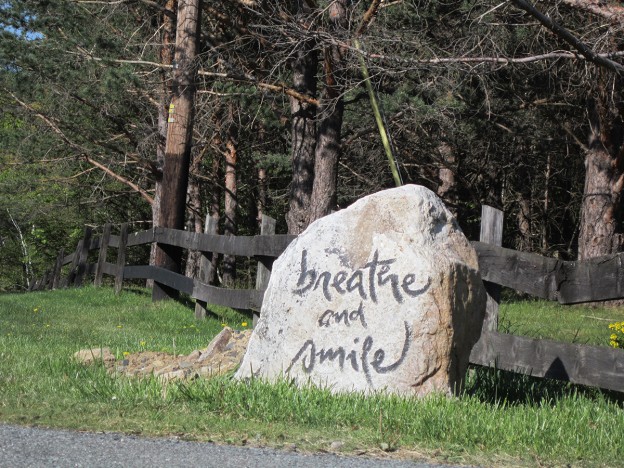 breathe
and
smile